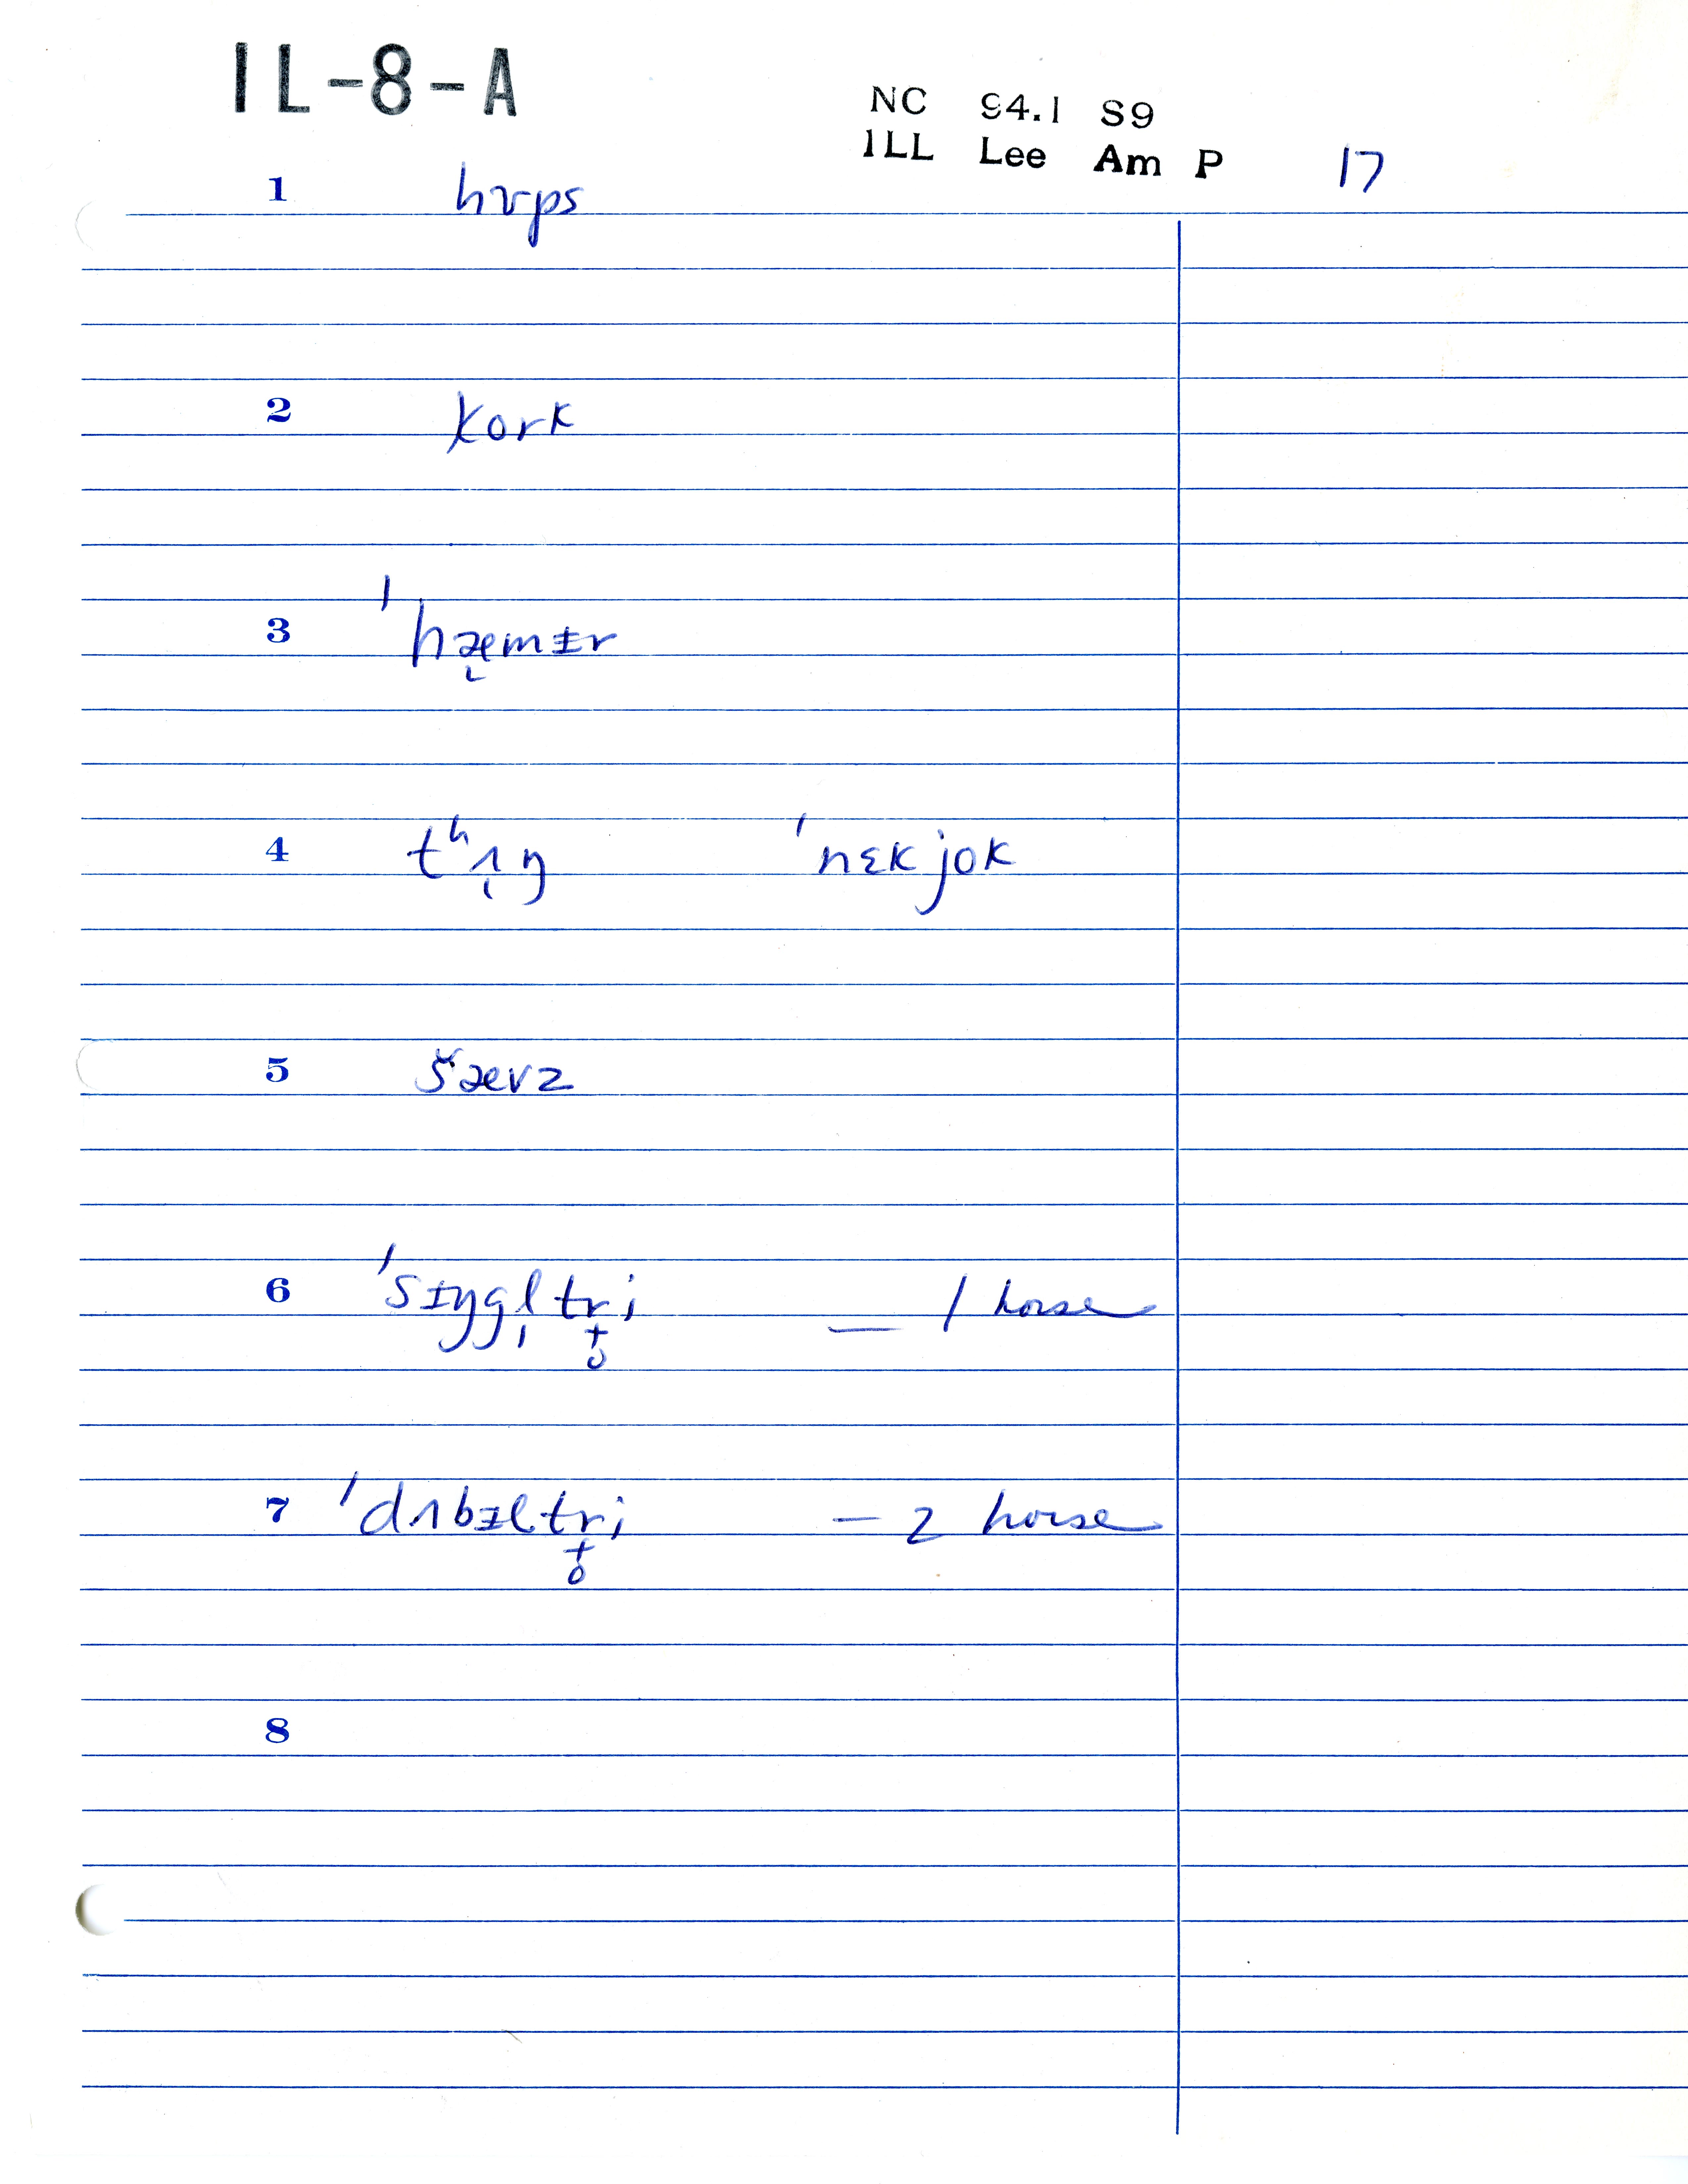 IL-8-A
NC 94.1 S9
ILL Lee Am P 17
1 hʊps
2 kork
3 ˈhæmɪ̵r
4 tʰʌŋ ˈnɛkjok
5 šævz
6 ˈsɪ̵ŋgl̩tri — 1 horse
7 ˈdʌbɪ̵ltri — 2 horse
8